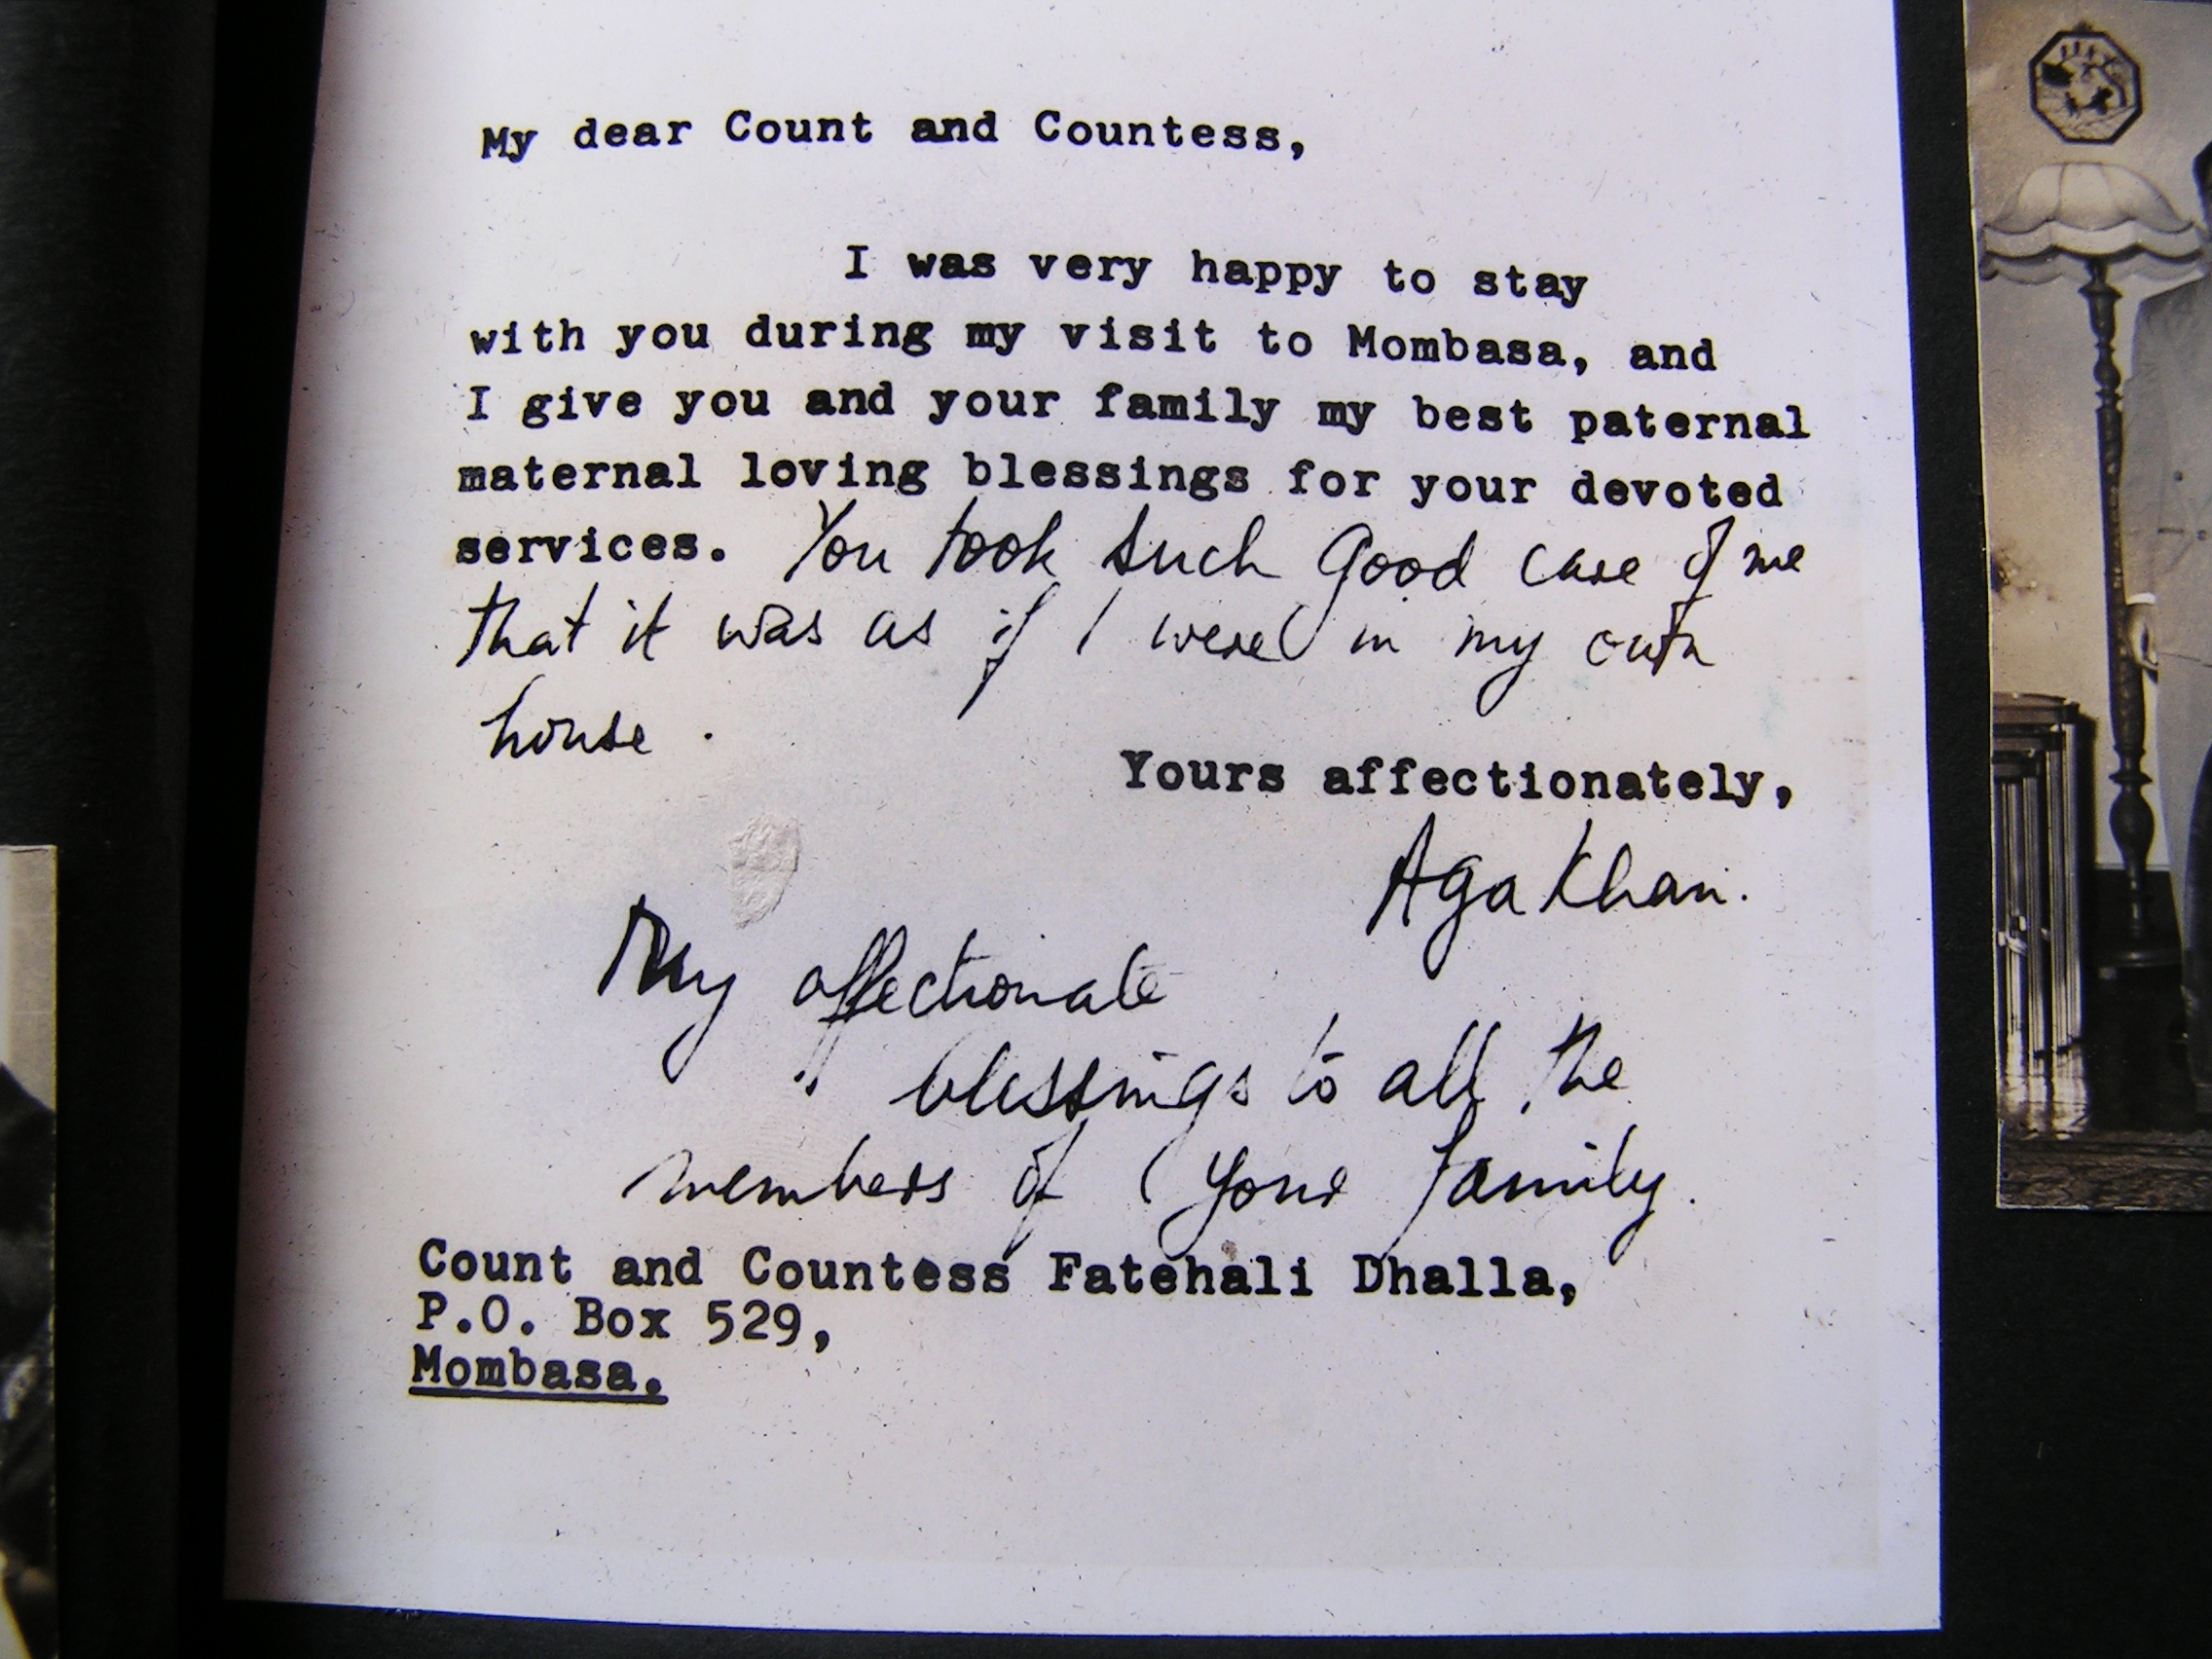 My dear Count and Countess,
I was very happy to stay
with you during my visit to Mombasa, and
I give you and your family my best paternal
maternal loving blessings for your devoted
services. You took such good care of me
that it was as if I were in my own
house.
Yours affectionately,
Aga Khan.
My affectionate
blessings to all the
members of your family.
Count and Countess Fatehali Dhalla,
P.O. Box 529,
Mombasa.